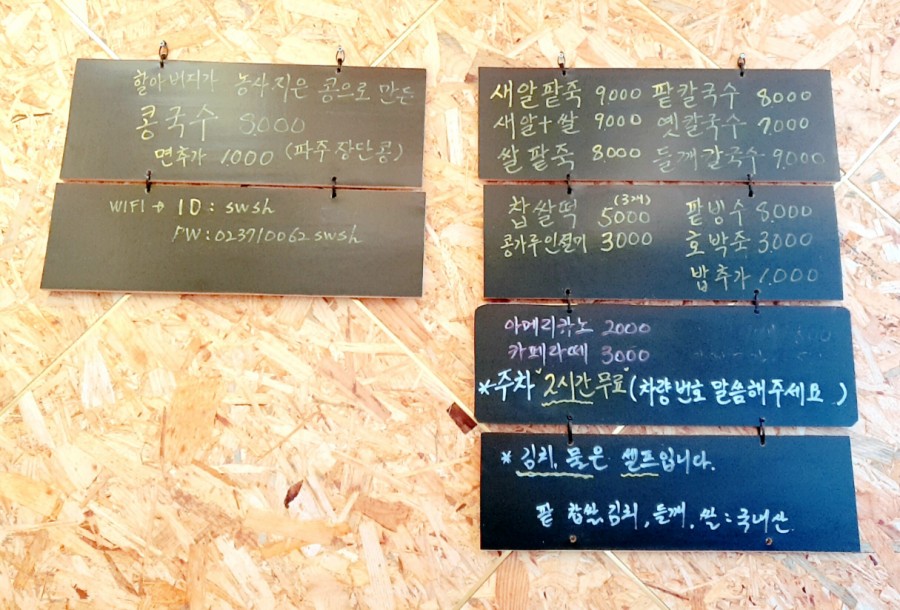 할아버지가 농사지은 콩으로 만든
콩국수 8000
면추가 1000 (파주장단콩)
WIFI → ID : swsh
PW : 023710062swsh
새알팥죽 9,000 팥칼국수 8000
새알+쌀 9,000 옛칼국수 7,000
쌀팥죽 8,000 들깨칼국수 9,000
찹쌀떡 (3개) 5000 팥빙수 8,000
콩가루인절미 3000 호박죽 3,000
밥추가 1,000
아메리카노 2000
카페라떼 3000
*주차 "2시간무료" (차량번호 말씀해주세요)
* 김치, 물은 셀프입니다.
팥 찹쌀, 김치, 들깨, 쌀 : 국내산